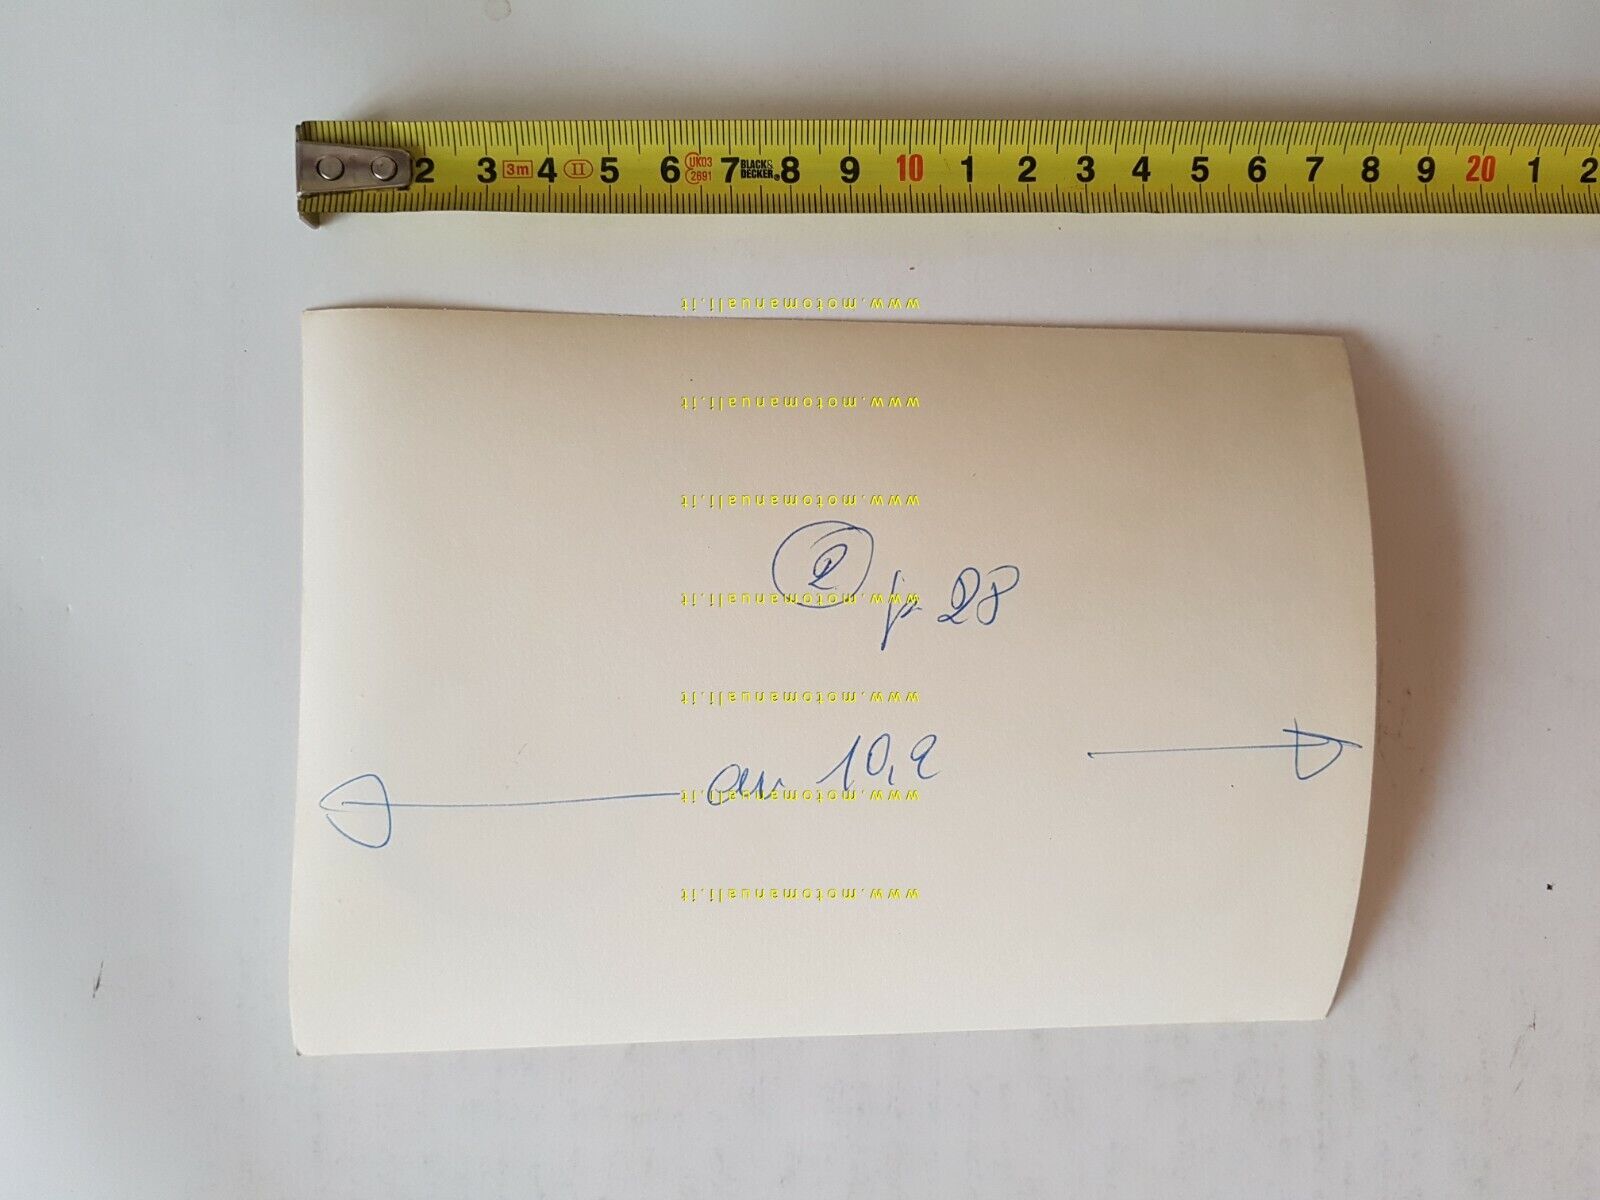 2 3 3m 4 II 5 6 UK03 2691 7 BLACK& DECKER® 8 9 10 1 2 3 4 5 6 7 8 9 20 1 2
www.motomanuali.it
www.motomanuali.it
www.motomanuali.it
2
p 28
www.motomanuali.it
www.motomanuali.it
cm 10,2
www.motomanuali.it
www.motomanuali.it